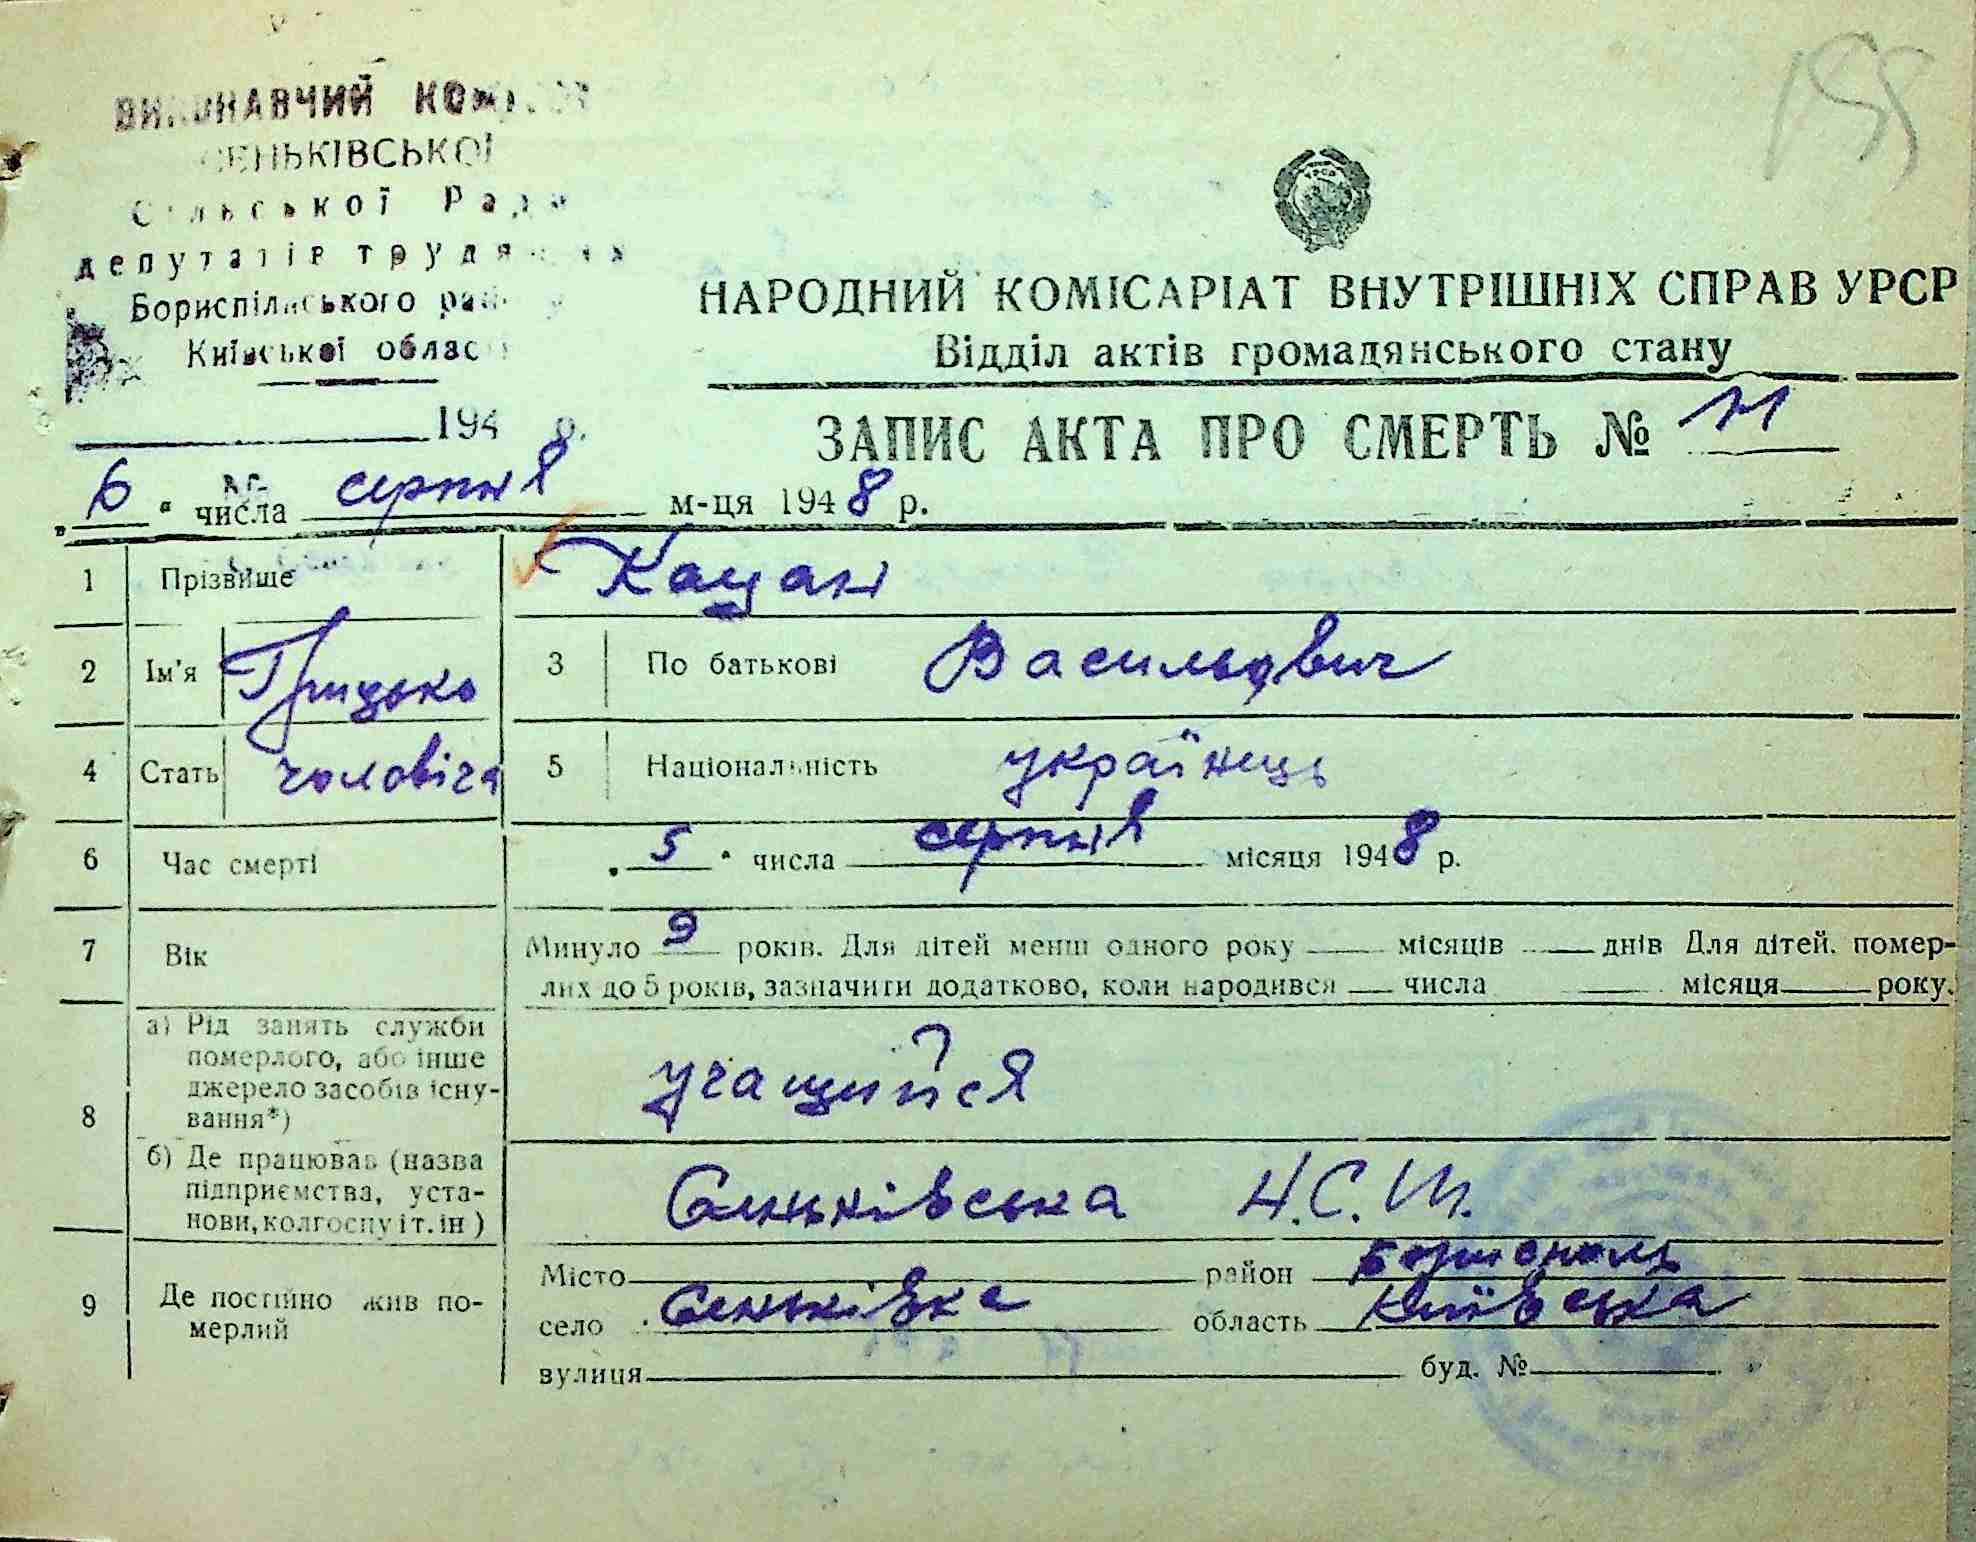 155
ВИКОНАВЧИЙ КОМІТЕТ
СЕНЬКІВСЬКОЇ
Сільської Ради
депутатів трудящих
Бориспільського району
Київської області
НАРОДНИЙ КОМІСАРІАТ ВНУТРІШНІХ СПРАВ УРСР
Відділ актів громадянського стану
194 8.
ЗАПИС АКТА ПРО СМЕРТЬ № 11
„ 6 “ числа серпня м-ця 1948 р.
1 Прізвище Кацан
2 Ім'я Грицько 3 По батькові Васильович
4 Стать чоловіча 5 Національність українець
6 Час смерті „ 5 “ числа серпня місяця 1948 р.
7 Вік Минуло 9 років. Для дітей менш одного року місяців днів Для дітей. помер-
лих до 5 років, зазначити додатково, коли народився числа місяця року.
8 а) Рід занять служби
померлого, або інше
джерело засобів існу-
вання*)
учащийся
б) Де працював (назва
підприємства, уста-
нови, колгоспу і т. ін)
Сеньківська Н.С.Ш.
9 Де постійно жив по-
мерлий
Місто район Бориспол
село Сеньківка область Київська
вулиця буд. №